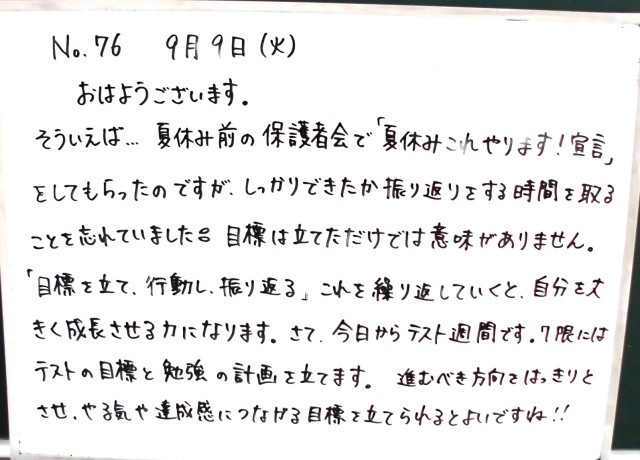 No.76 9月9日(火)
おはようございます。
そういえば… 夏休み前の保護者会で「夏休みこれやります!宣言」
をしてもらったのですが、しっかりできたか振り返りをする時間を取る
ことを忘れていました。目標は立てただけでは意味がありません。
「目標を立て、行動し、振り返る」これを繰り返していくと、自分を大
きく成長させる力になります。さて、今日からテスト週間です。7限には
テストの目標と勉強の計画を立てます。 進むべき方向をはっきりと
させ、やる気や達成感につながる目標を立てられるとよいですね!!